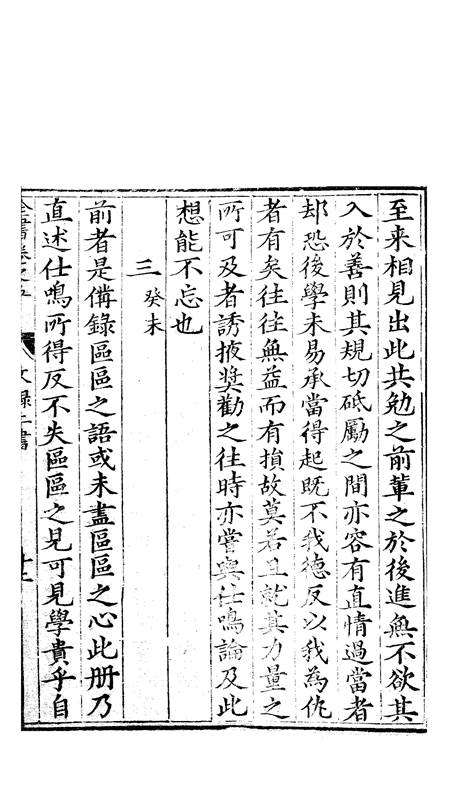 至来相見出此共勉之前輩之於後進無不欲其
入於善則其規切砥勵之間亦容有直情過當者
却恐後學未易承當得起既不我德反以我為仇
者有矣往往無益而有損故莫若且就其力量之
所可及者誘掖奬勸之往時亦嘗與仕鳴論及此
想能不忘也
三癸未
前者是俻錄區區之語或未盡區區之心此册乃
直述仕鳴所得反不失區區之見可見學貴乎自
文録二書